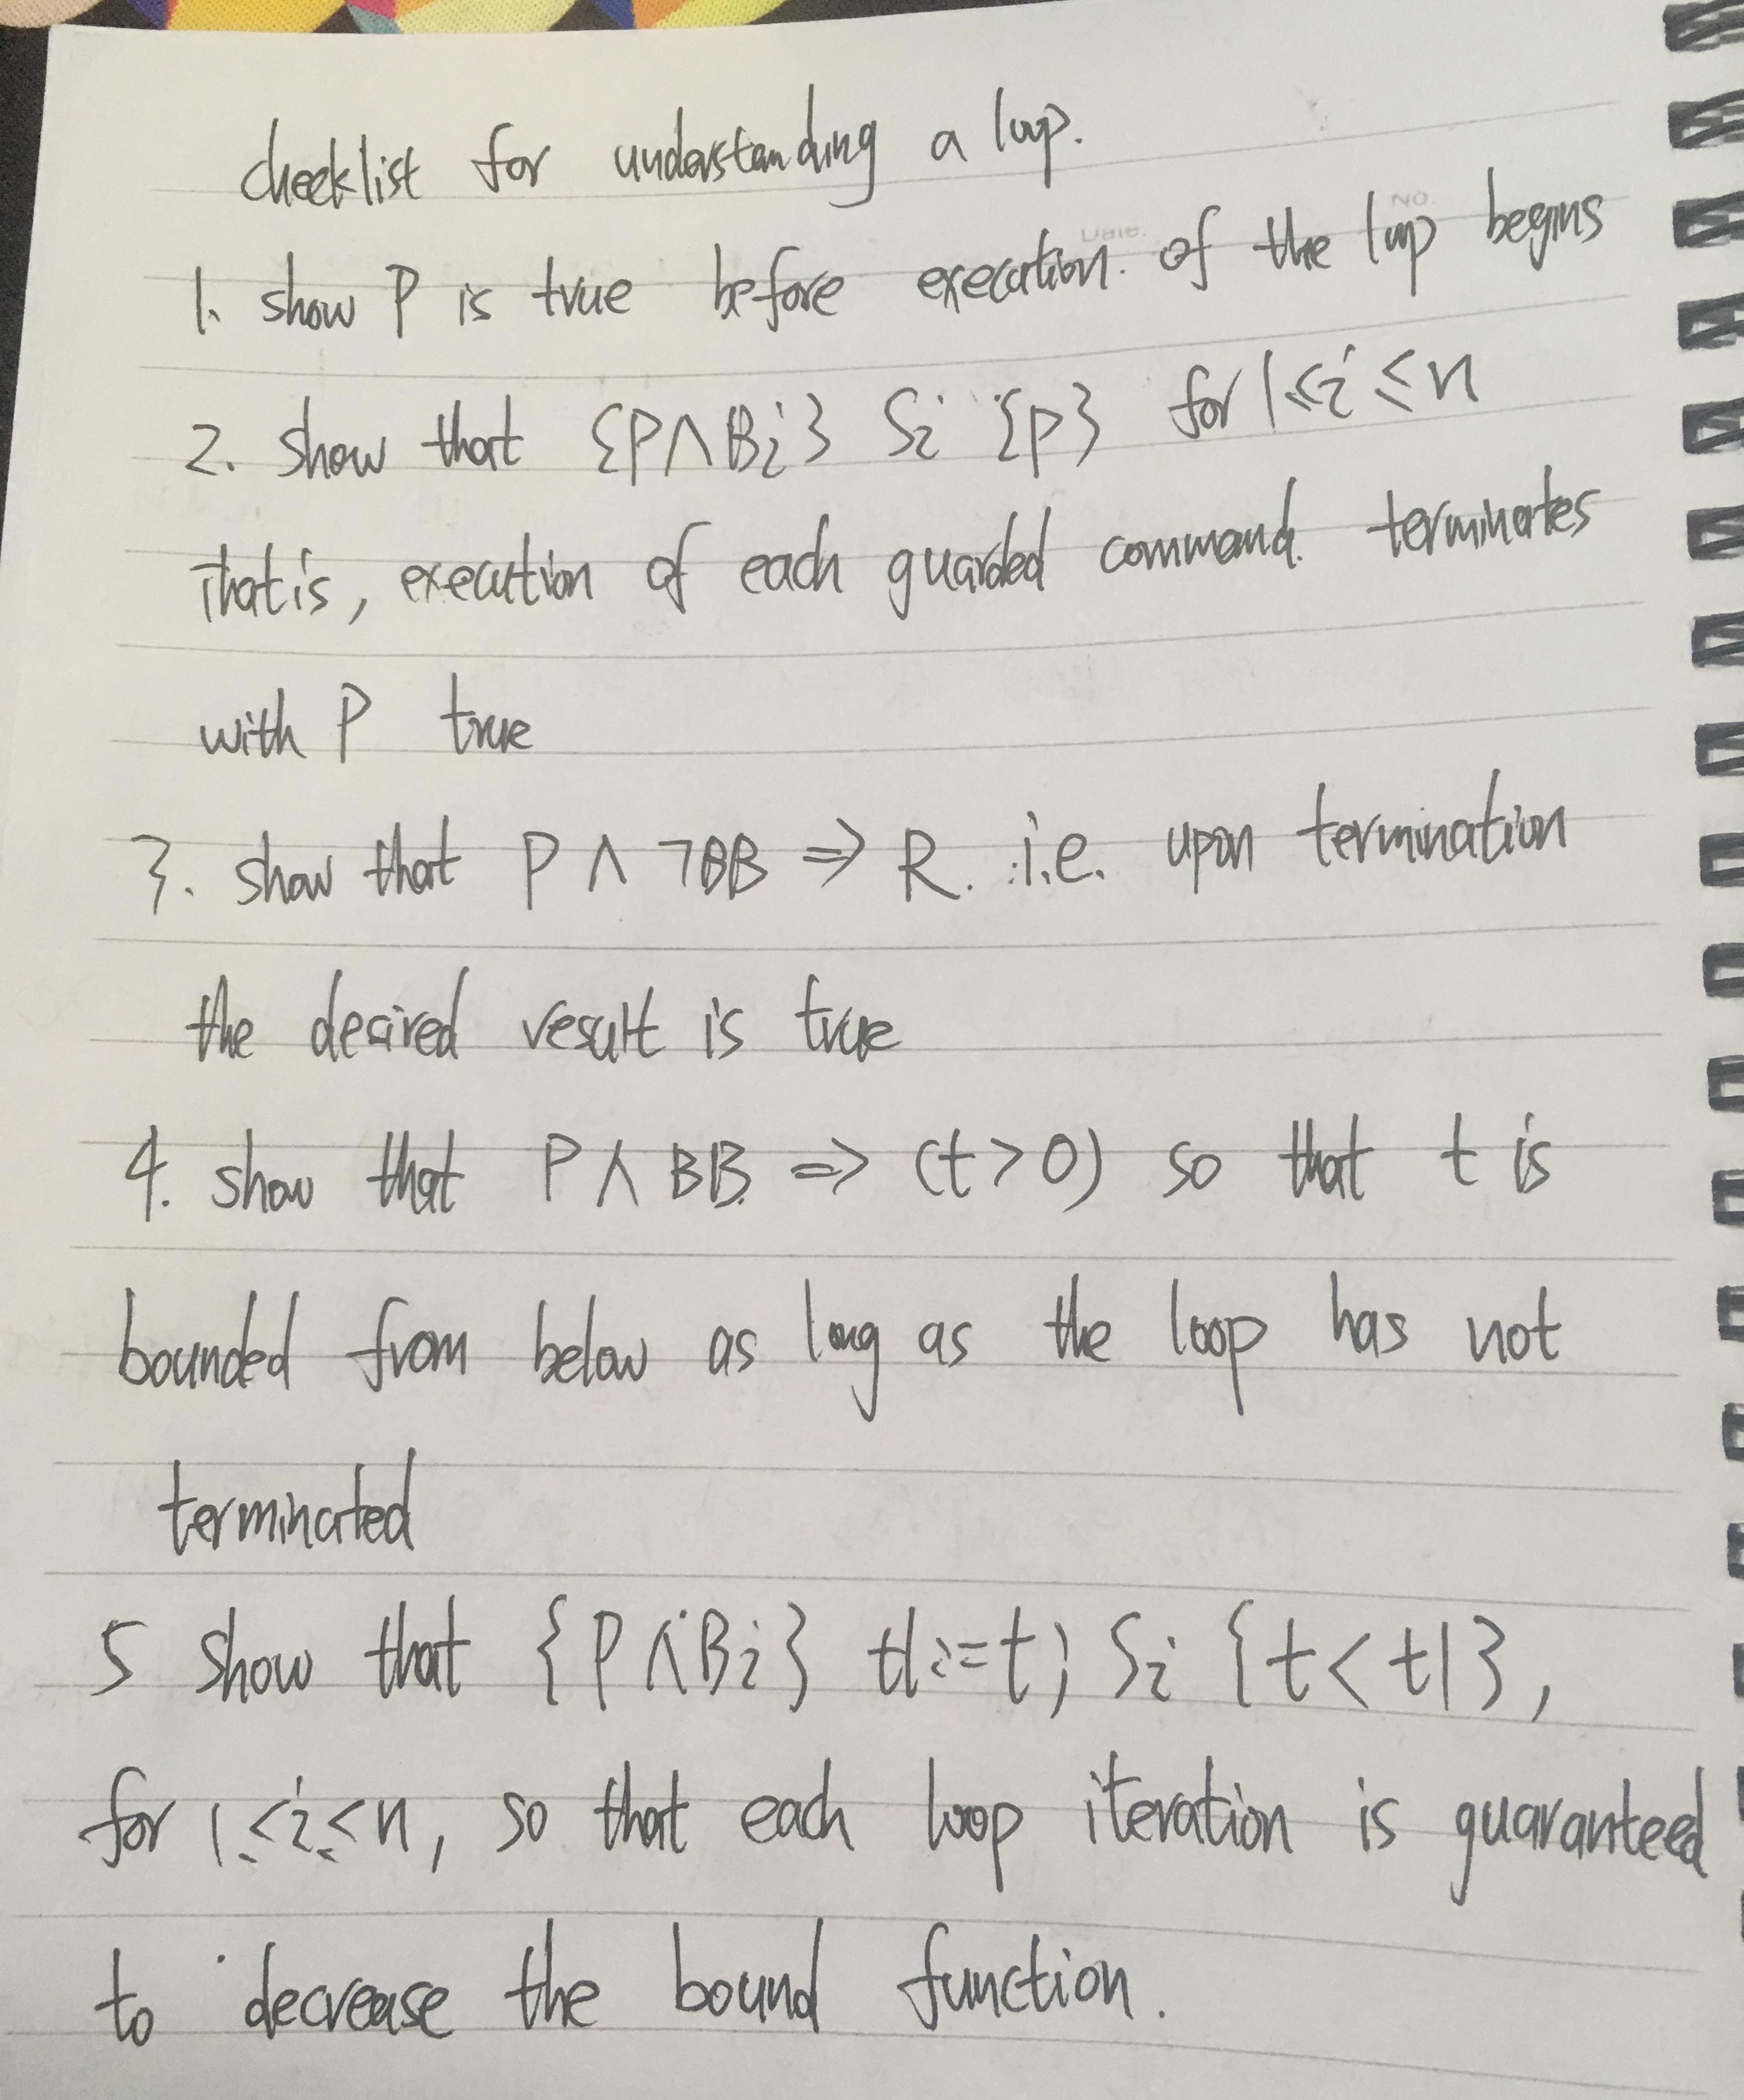 checklist for understanding a loop.
No.
Date.
1. show P is true before execution. of the loop begins
2. show that {P∧Bi} Si {P} for 1≤i≤n
That is, execution of each guarded command. terminates
with P true
3. show that P ∧ ¬BB => R. i.e. upon termination
the desired result is true
4. show that P ∧ BB. => (t>0) so that t is
bounded from below as long as the loop has not
terminated
5 show that {P∧Bi} t1:=t; Si {t<t1},
for 1≤i≤n, so that each loop iteration is guaranteed
to decrease the bound function.